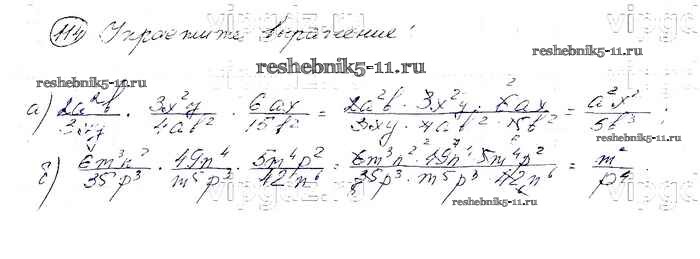 114 Упростите выражение:
reshebnik5-11.ru
reshebnik5-11.ru
reshebnik5-11.ru
а) 2a²b/3xy · 3x²y/4ab² · 6ax/15b² = 2a²b · 3x²y · 6ax/3xy · 4ab² · 15b² = a²x²/5b³ ;
б) 6m³n²/35p³ · 49n⁴/m⁵p³ · 5m⁴p²/42n⁶ = 6m³n² · 49n⁴ · 5m⁴p²/35p³ · m⁵p³ · 42n⁶ = m²/p⁴ .
reshebnik5-11.ru